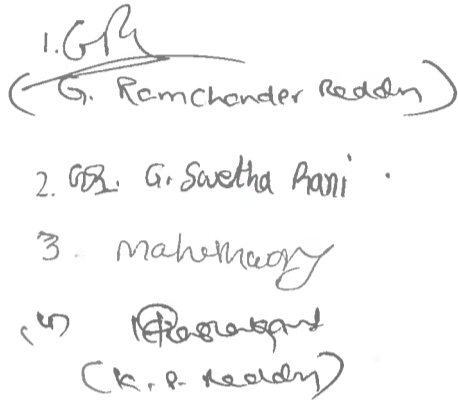 1. GR
(G. Ramchander Reddy)
2. GR. G. Swetha Rani.
3.
(4)
(K. P. Reddy)